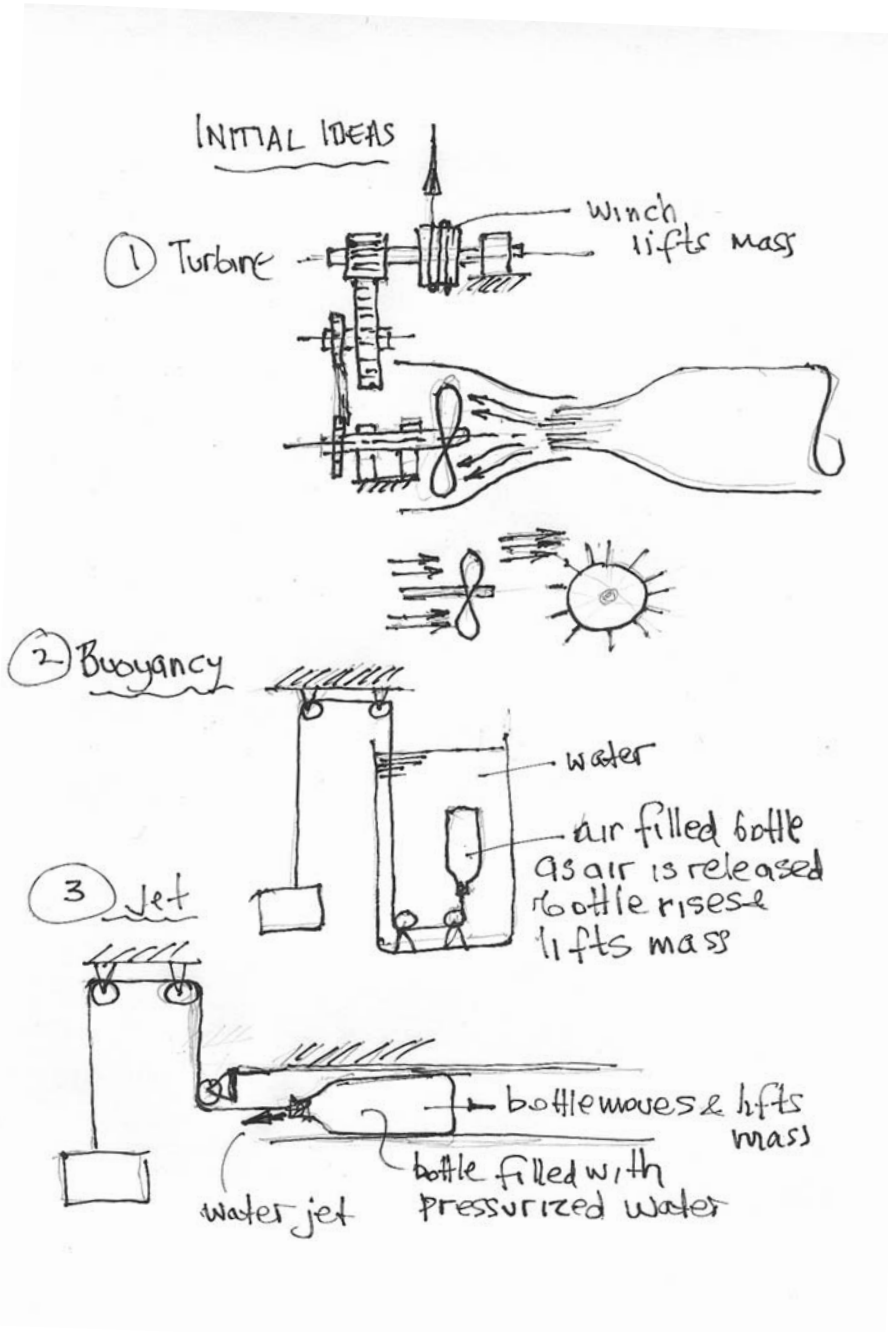 INITIAL IDEAS
1 Turbine
winch
lifts mass
2 Buoyancy
water
air filled bottle
as air is released
bottle rises &
lifts mass
3 Jet
bottle moves & lifts
mass
bottle filled with
pressurized water
water jet